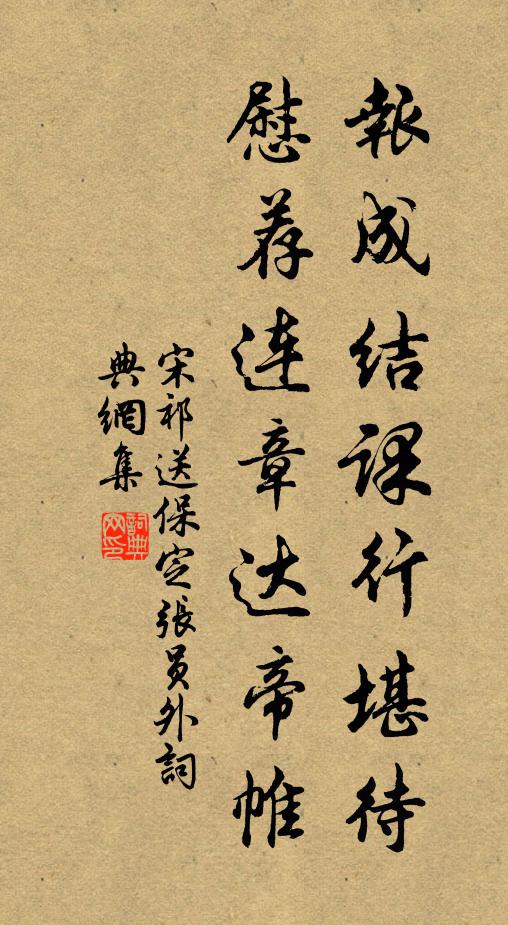 報成结課行堪待
慰荐连章达帝帷
宋祁送保定張員外詞
典網集
詞典网印